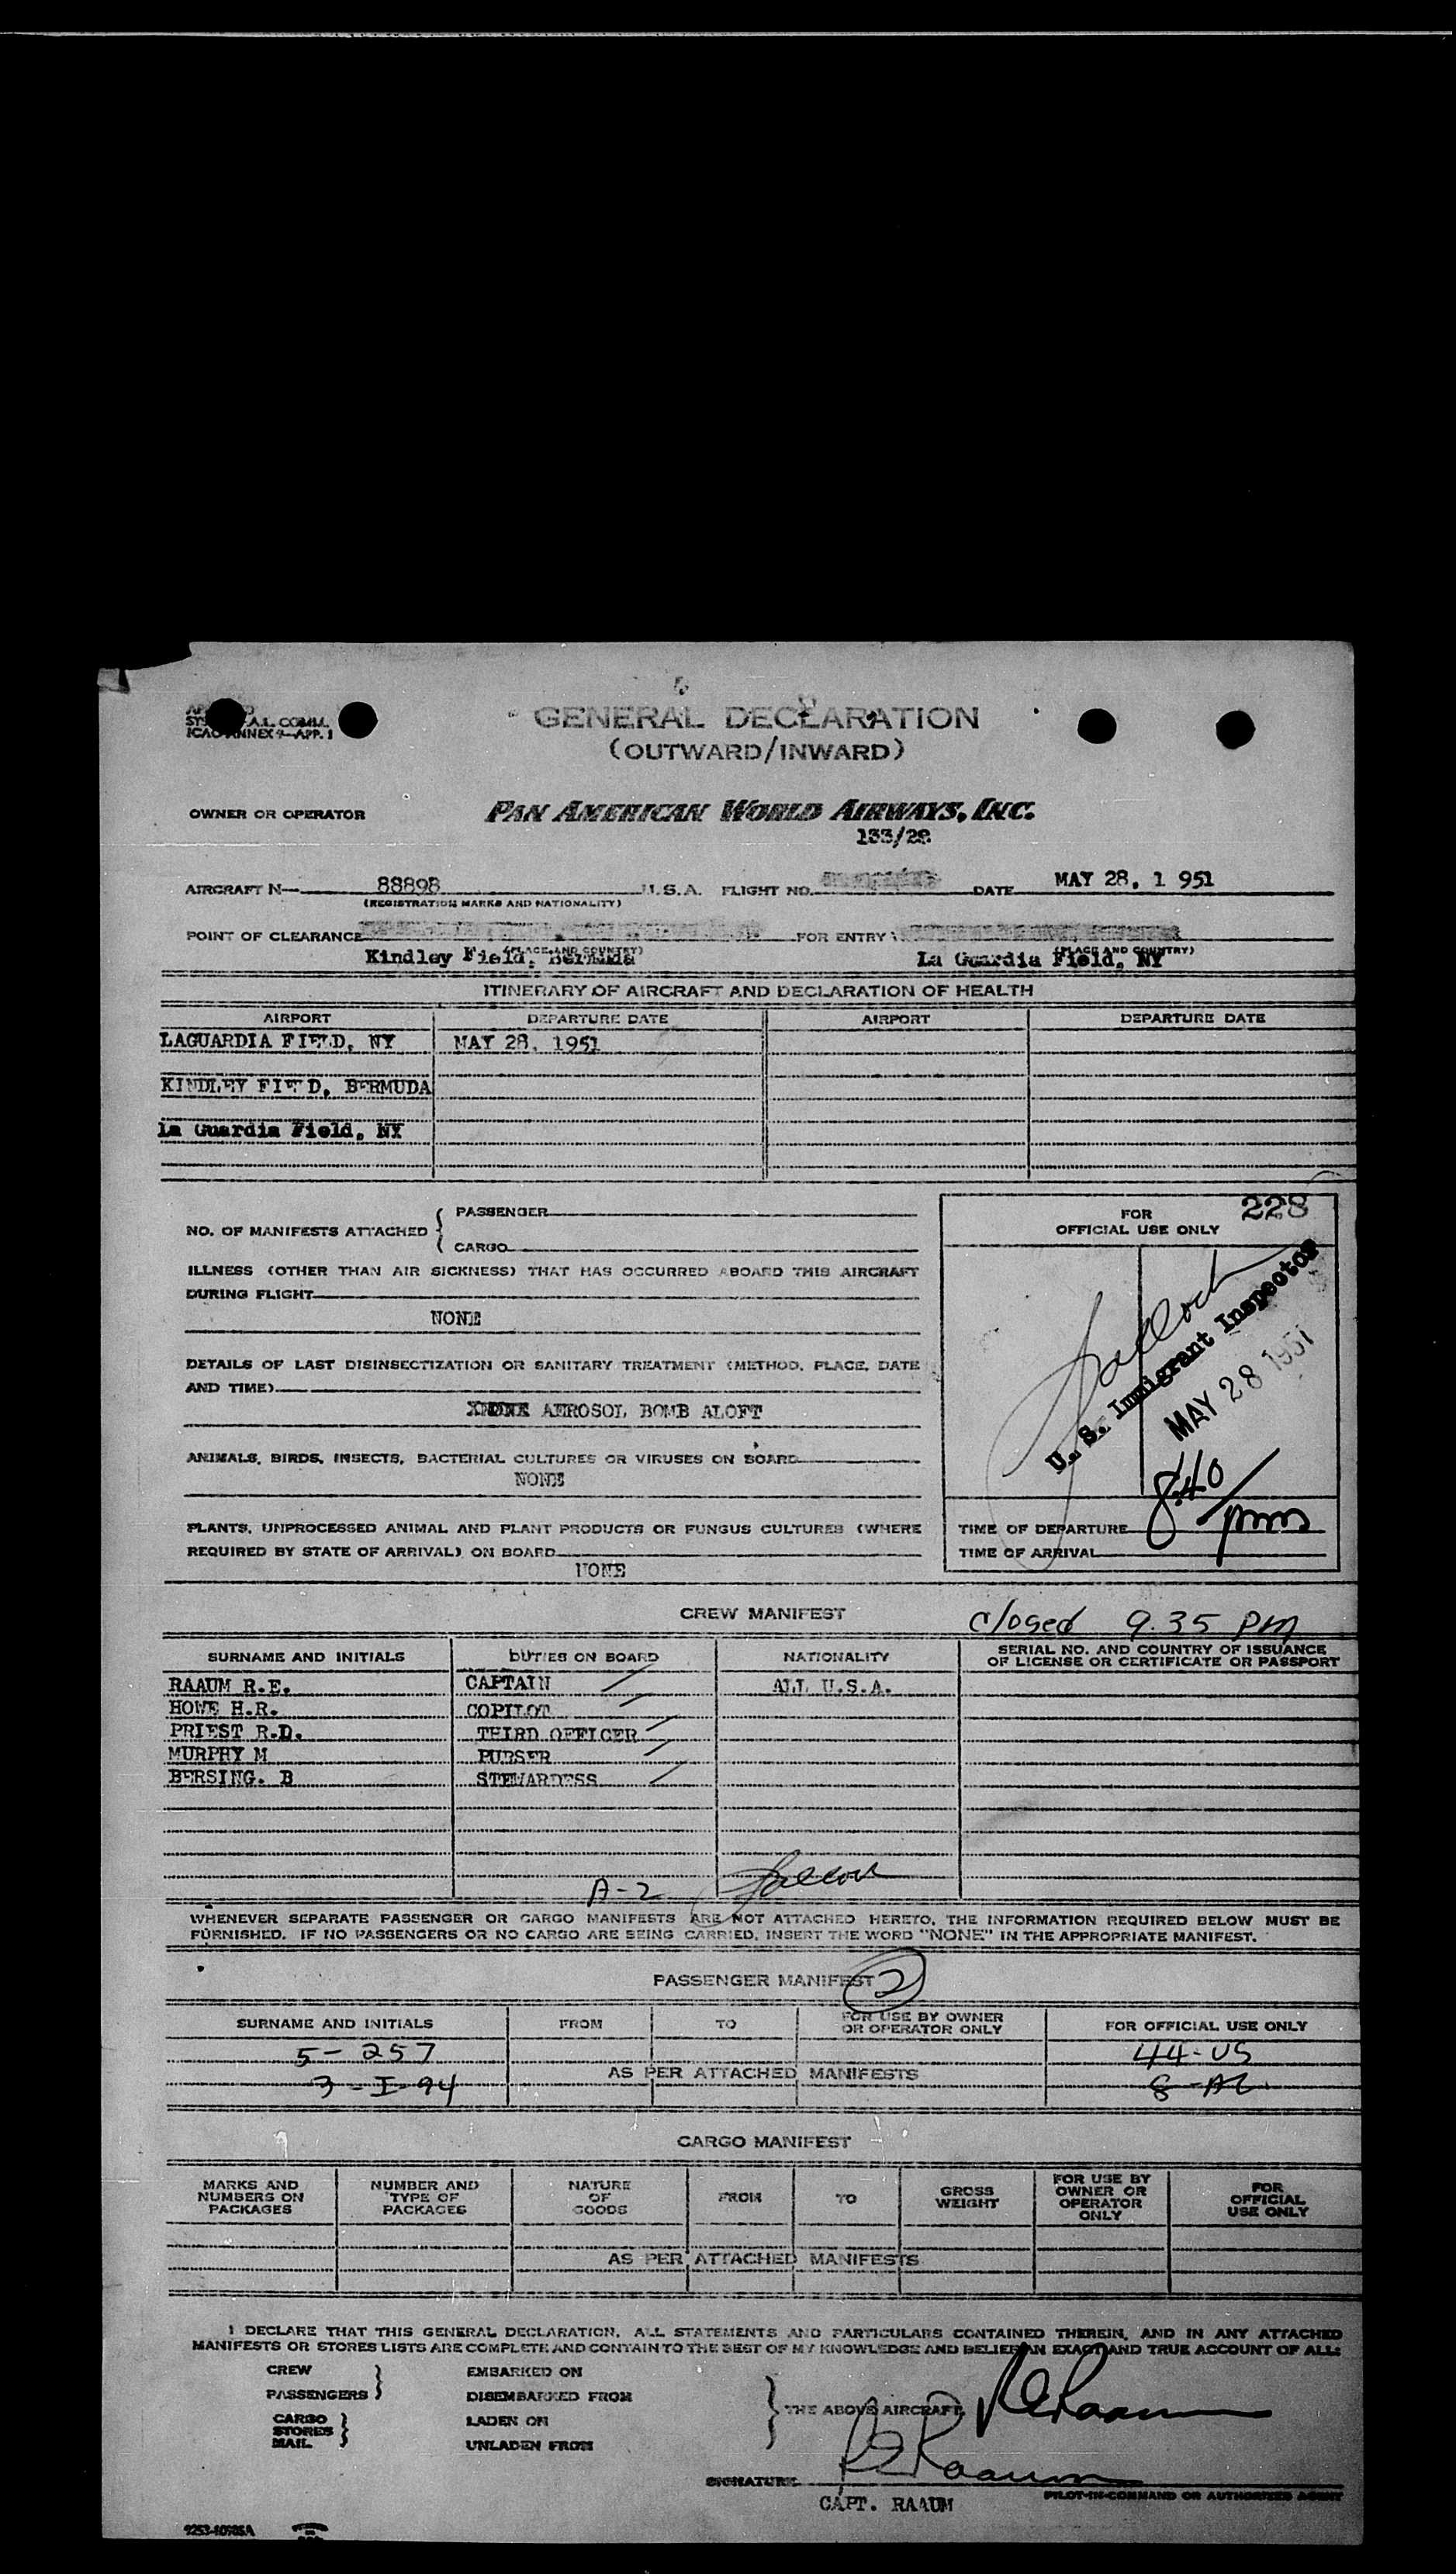 A.L. COMM.
ICAO ANNEX 9—APP. 1
GENERAL DECLARATION
(OUTWARD/INWARD)
OWNER OR OPERATOR PAN AMERICAN WORLD AIRWAYS, INC.
133/28
AIRCRAFT N— 88898 U.S.A. FLIGHT NO. DATE MAY 28, 1 951
(REGISTRATION MARKS AND NATIONALITY)
POINT OF CLEARANCE FOR ENTRY
(PLACE AND COUNTRY) (PLACE AND COUNTRY)
Kindley Field, Bermuda La Guardia Field, NY
ITINERARY OF AIRCRAFT AND DECLARATION OF HEALTH
AIRPORT DEPARTURE DATE AIRPORT DEPARTURE DATE
LAGUARDIA FIELD, NY MAY 28, 1951
KINDLEY FIELD, BERMUDA
La Guardia Field, NY
NO. OF MANIFESTS ATTACHED { PASSENGER
CARGO
FOR 228
OFFICIAL USE ONLY
ILLNESS (OTHER THAN AIR SICKNESS) THAT HAS OCCURRED ABOARD THIS AIRCRAFT
DURING FLIGHT
NONE
U. S. Immigrant Inspector
MAY 28 1951
DETAILS OF LAST DISINSECTIZATION OR SANITARY TREATMENT (METHOD, PLACE, DATE
AND TIME)
AEROSOL BOMB ALOFT
ANIMALS, BIRDS, INSECTS, BACTERIAL CULTURES OR VIRUSES ON BOARD
NONE
8:40 pm
PLANTS, UNPROCESSED ANIMAL AND PLANT PRODUCTS OR FUNGUS CULTURES (WHERE
REQUIRED BY STATE OF ARRIVAL) ON BOARD
NONE
TIME OF DEPARTURE
TIME OF ARRIVAL
CREW MANIFEST closed 9.35 pm
SURNAME AND INITIALS DUTIES ON BOARD NATIONALITY SERIAL NO. AND COUNTRY OF ISSUANCE
OF LICENSE OR CERTIFICATE OR PASSPORT
RAAUM R.E. CAPTAIN ALL U.S.A.
HOWE H.R. COPILOT
PRIEST R.D. THIRD OFFICER
MURPHY M PURSER
BERSING. B STEWARDESS
A-2
WHENEVER SEPARATE PASSENGER OR CARGO MANIFESTS ARE NOT ATTACHED HERETO, THE INFORMATION REQUIRED BELOW MUST BE
FURNISHED. IF NO PASSENGERS OR NO CARGO ARE BEING CARRIED, INSERT THE WORD "NONE" IN THE APPROPRIATE MANIFEST.
PASSENGER MANIFEST 2
SURNAME AND INITIALS FROM TO FOR USE BY OWNER
OR OPERATOR ONLY FOR OFFICIAL USE ONLY
5 - 257 44-US
AS PER ATTACHED MANIFESTS
3 - I-94 8 -AL
CARGO MANIFEST
MARKS AND
NUMBERS ON
PACKAGES
NUMBER AND
TYPE OF
PACKAGES
NATURE
OF
GOODS
FROM
TO
GROSS
WEIGHT
FOR USE BY
OWNER OR
OPERATOR
ONLY
FOR
OFFICIAL
USE ONLY
AS PER ATTACHED MANIFESTS
I DECLARE THAT THIS GENERAL DECLARATION, ALL STATEMENTS AND PARTICULARS CONTAINED THEREIN, AND IN ANY ATTACHED
MANIFESTS OR STORES LISTS ARE COMPLETE AND CONTAIN TO THE BEST OF MY KNOWLEDGE AND BELIEF AN EXACT AND TRUE ACCOUNT OF ALL:
CREW EMBARKED ON
PASSENGERS } DISEMBARKED FROM } THE ABOVE AIRCRAFT. RE Raaum
CARGO
STORES
MAIL } LADEN ON
UNLADEN FROM
SIGNATURE RE Raaum
CAPT. RAAUM PILOT-IN-COMMAND OR AUTHORIZED AGENT